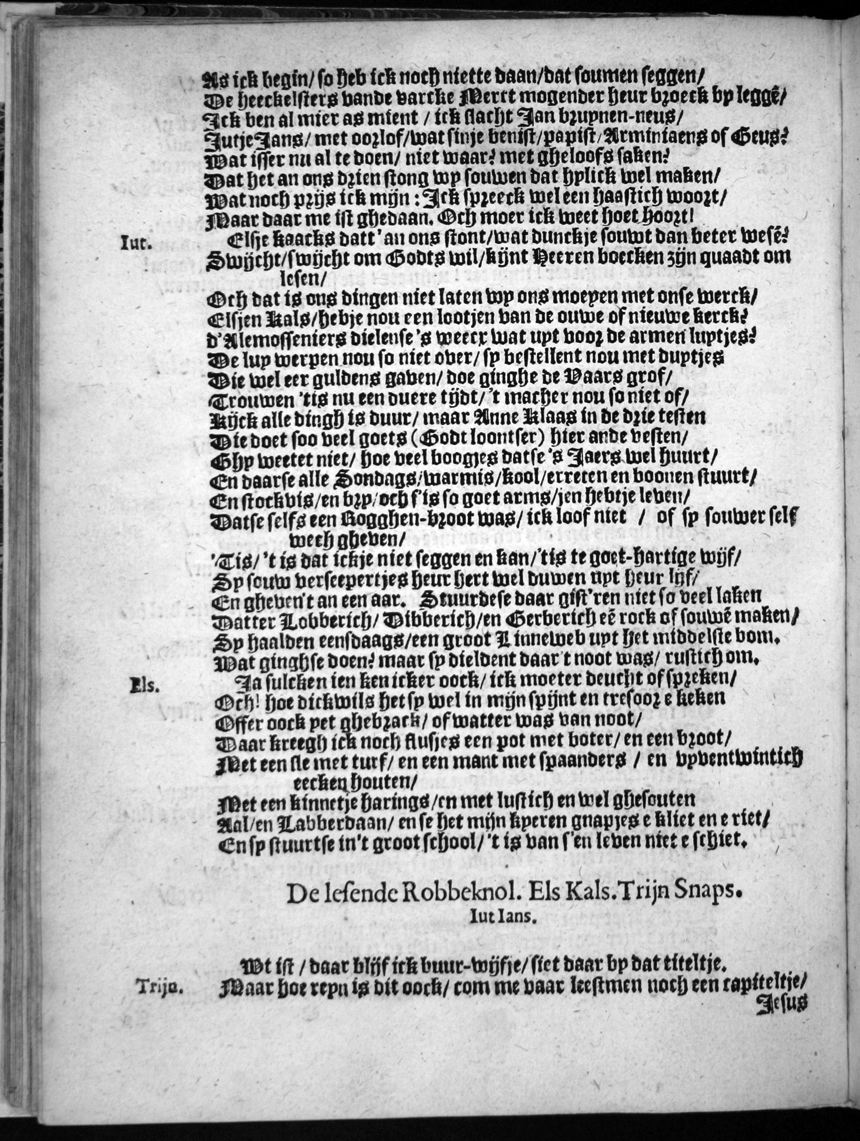 As ick begin/ so heb ick noch niette daan/dat soumen seggen/
De heeckelsters vande varcke Merct mogender heur broeck by leggē/
Ick ben al mier as mient / ick slacht Jan bruynen-neus/
JutjeJans/ met oorlof/wat sinje benist/papist/Arminiaens of Geus?
Wat isser nu al te doen/ niet waar? met gheloofs saken?
Dat het an ons drien stong wy souwen dat hylick wel maken/
Wat noch prijs ick mijn : Ick spreeck wel een haastich woort/
Maar daar me ist ghedaan. Och moer ick weet hoet hoort!
Iut. Elsje kaacks datt' an ons stont/wat dunckje souwt dan beter wesē?
Swijcht/swijcht om Godts wil/kijnt Heeren boecken zijn quaadt om
lesen/
Och dat is ons dingen niet laten wy ons moeyen met onse werck/
Elsjen Kals/hebje nou een lootjen van de ouwe of nieuwe kerck?
d'Alemosseniers dielense 's weecx wat uyt voor de armen luytjes?
De luy werpen nou so niet over/ sy bestellent nou met duytjes
Die wel eer guldens gaven/ doe ginghe de Vaars grof/
Trouwen 'tis nu een duere tijdt/ 't macher nou so niet of/
Kijck alle dingh is duur/ maar Anne Klaas in de drie testen
Die doet soo veel goets (Godt loontser) hier ande vesten/
Ghy weetet niet/ hoe veel boogjes datse 's Jaers wel huurt/
En daarse alle Sondags/warmis/kool/erreten en boonen stuurt/
En stockvis/en bry/och s'is so goet arms/jen hebtje leven/
Datse selfs een Rogghen-broot was/ ick loof niet / of sy souwer self
wech gheven/
'Tis/ 't is dat ickje niet seggen en kan/'tis te goet-hartige wijf/
Sy souw verseepertjes heur hert wel duwen uyt heur lijf/
En gheven't an een aar. Stuurdese daar gist'ren niet so veel laken
Datter Lobberich/ Dibberich/en Gerberich eē rock of souwē maken/
Sy haalden eensdaags/een groot Linneweb uyt het middelste bom.
Wat ginghse doen? maar sy dieldent daar't noot was/ rustich om.
Els. Ja sulcken ien ken icker oock/ ick moeter deucht of spreken/
Och! hoe dickwils het sy wel in mijn spijnt en tresoor e keken
Offer oock yet ghebrack/ of watter was van noot/
Daar kreegh ick noch flusjes een pot met boter/ en een broot/
Met een sle met turf/ en een mant met spaanders / en vyventwintich
eecken houten/
Met een kinnetje harings/en met lustich en wel ghesouten
Aal/en Labberdaan/ en se het mijn kyeren gnapjes e kliet en e riet/
En sy stuurtse in't groot school/ 't is van s'en leven niet e schiet.
De lesende Robbeknol. Els Kals. Trijn Snaps.
Iut Ians.
Wt ist / daar blijf ick buur-wijfje/ siet daar by dat titeltje.
Trijn. Maar hoe reyn is dit oock/ com me vaar leestmen noch een capiteltje/
Jesus